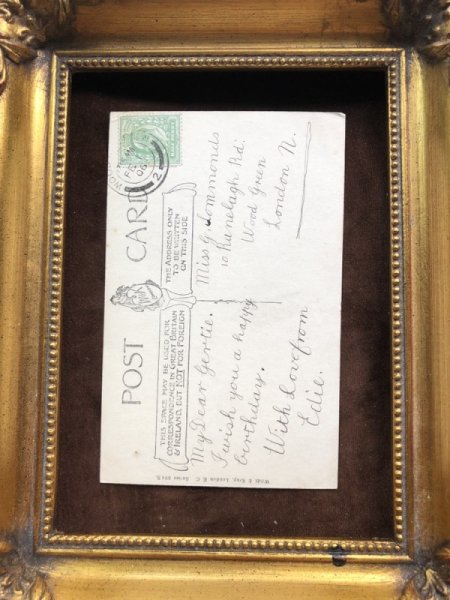 POST CARD
THIS SPACE MAY BE USED FOR
CORRESPONDENCE IN GREAT BRITAIN
& IRELAND, BUT NOT FOR FOREIGN
THE ADDRESS ONLY
TO BE WRITTEN
ON THIS SIDE
My Dear Gertie.
I wish you a happy
birthday.
With Love from
Edie.
Miss G. Simmonds
10 Ranelagh Rd.
Wood Green
London N.
2
London E.C.